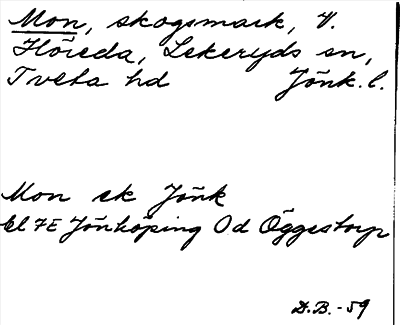 Mon, skogsmark, V.
Höreda, Lekeryds sn,
Tveta hd Jönk. l.
Mon ek Jönk
bl 7E Jönköping Od Öggestorp
D.B. -59